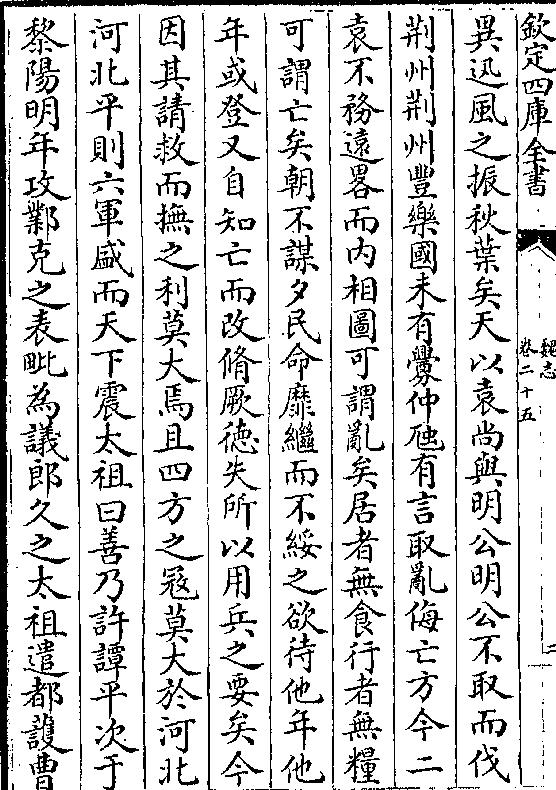 欽定四庫全書
魏志
卷二十五
二
異迅風之振秋葉矣天以袁尚與明公明公不取而伐
荆州荆州豐樂國未有釁仲虺有言取亂侮亡方今二
袁不務遠畧而内相圖可謂亂矣居者無食行者無糧
可謂亡矣朝不謀夕民命靡繼而不綏之欲待他年他
年或登又自知亡而改脩厥徳失所以用兵之要矣今
因其請救而撫之利莫大焉且四方之冦莫大於河北
河北平則六軍盛而天下震太祖曰善乃許譚平次于
黎陽明年攻鄴克之表毗為議郎久之太祖遣都䕶曹